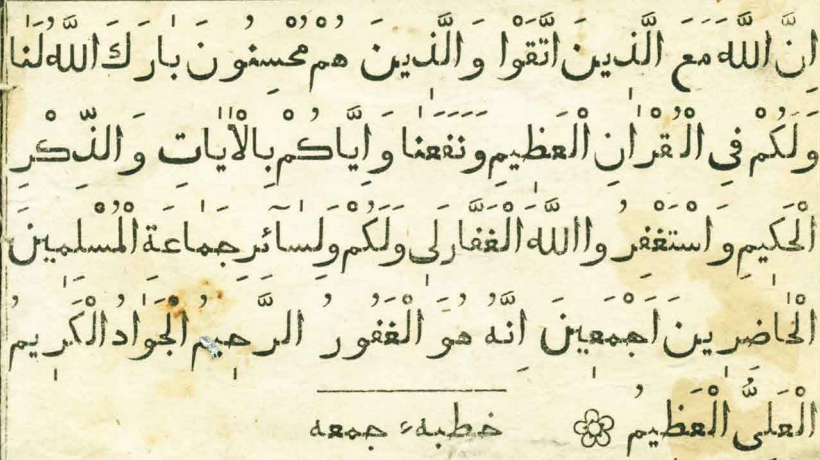 اِنَّ اللَّهَ مَعَ الَّذينَ اتَّقَوْا وَالَّذينَ هُمْ مُحْسِنُونَ بٰارَكَ اللَّهُ لَنٰا
وَلَكُمْ فِى الْقُرْاٰنِ الْعَظيمِ وَنَفَعَنٰا وَاِيَّاكُمْ بِالْاٰيٰاتِ وَالذِّكْرِ
الْحَكيمِ وَاسْتَغْفِرُوا اللَّهَ الْغَفَّارَ لى وَلَكُمْ وَلِسٰآئِرِ جَمٰاعَةِ الْمُسْلِمينَ
الْحٰاضِرينَ اَجْمَعِينَ اِنَّهُ هُوَ الْغَفُورُ الرَّحِيمُ الْجَوٰادُ الْكَرِيمُ
الْعَلِىُّ الْعَظِيمُ
خطبهٔ جمعه